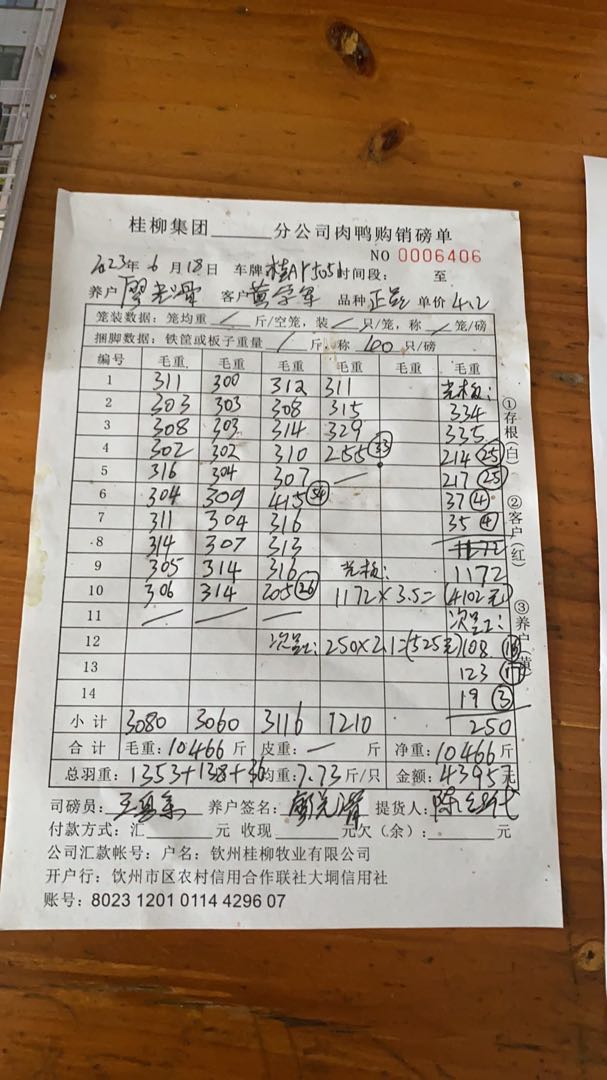 桂柳集团______分公司肉鸭购销磅单
NO 0006406
2023年 6 月 18 日 车牌 时间段: 至
养户 客户 品种 正品 单价 4.2
笼装数据: 笼均重 / 斤/空笼, 装 / 只/笼, 称 / 笼/磅
捆脚数据: 铁筐或板子重量 / 斤, 称 100 只/磅
编号 毛重 毛重 毛重 毛重 毛重 毛重
1 311 300 312 311 光板:
2 303 303 308 315 334
3 308 303 314 329 335
4 302 302 310 255 (33) 214 (25)
5 316 304 307 / 217 (25)
6 304 309 415 (54) 37 (4)
7 311 304 316 35 (4)
8 314 307 313
9 305 314 316 光板: 1172
10 306 314 205 (26) 1172×3.5=(4102元)
11 / / / 次品:
12 次品: 250×2.1=(525元) 108
13 123
14 19 (3)
小计 3080 3060 3116 1210 250
合计 毛重: 10466 斤 皮重: — 斤 净重: 10466 斤
总羽重: 1353+138+36 均重: 7.73 斤/只 金额: 43957元
司磅员: 养户签名: 提货人:
付款方式: 汇______元 收现______元欠(余): ______元
公司汇款帐号: 户名: 钦州桂柳牧业有限公司
开户行: 钦州市区农村信用合作联社大垌信用社
账号: 8023 1201 0114 4296 07
①存根(白)
②客户(红)
③养户(黄)